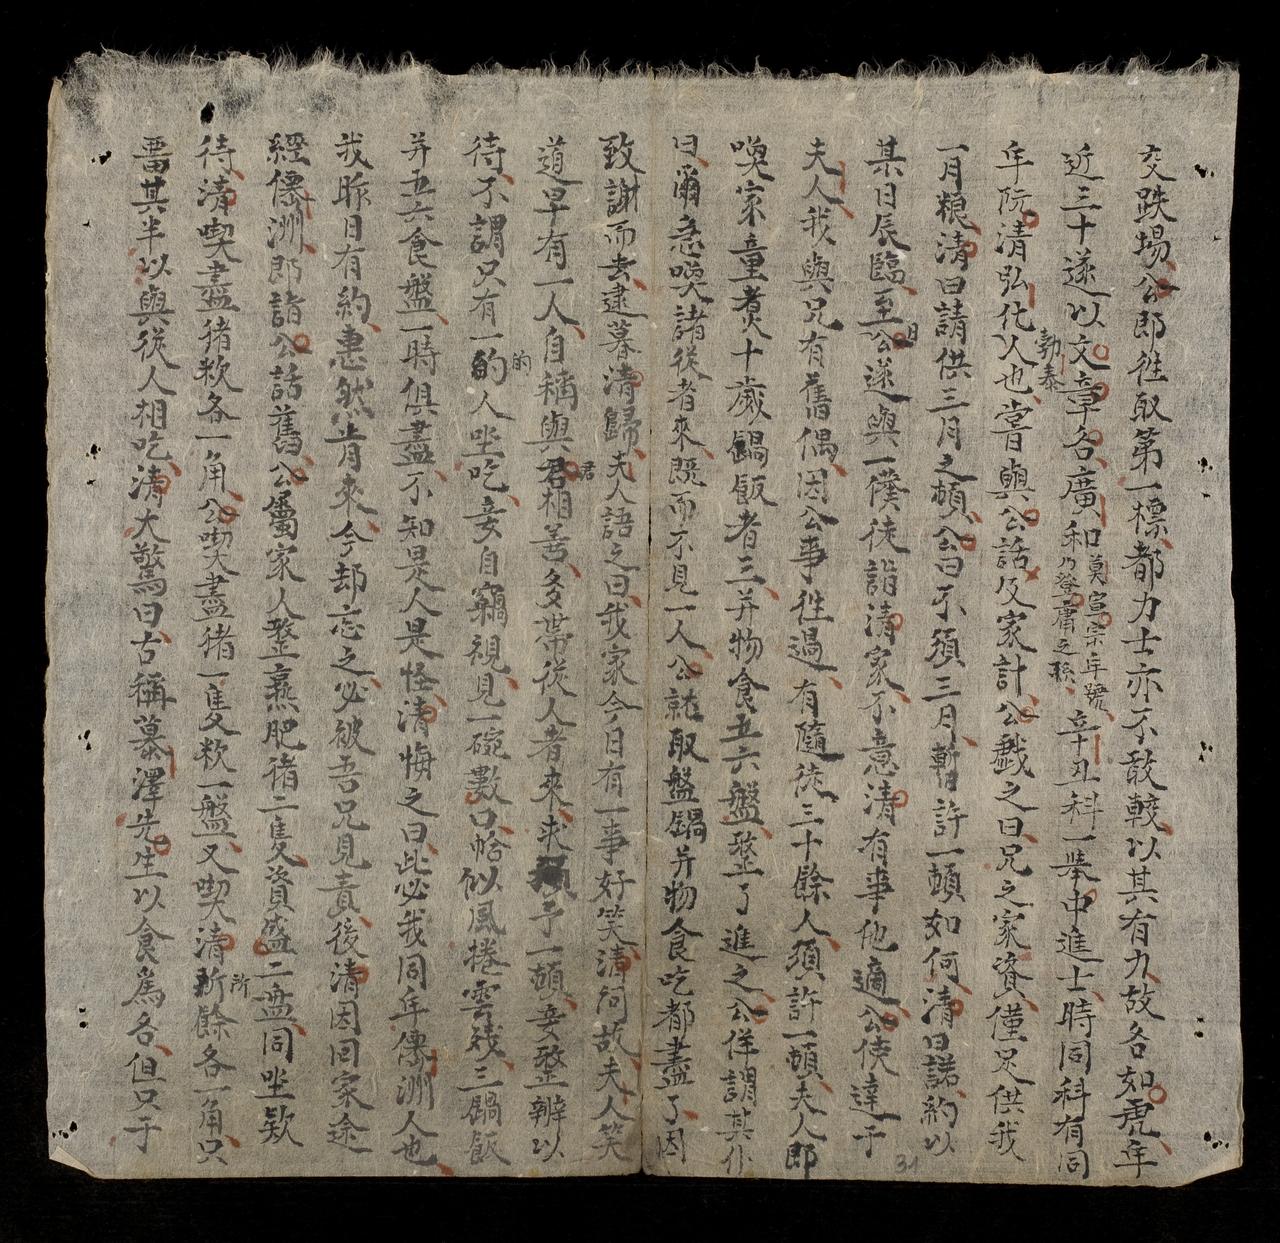 交跌場公即徃取第一標都力士亦不敢較以其有力故名如虎年
近三十遂以文章名廣和莫宣宗年號乃登庸之孫辛丑科一举中進士時同科有同
年阮清弘化人也嘗與公話及家計公戲之曰兄之家資僅足供我
勃泰
一月粮清曰請供三月之頓公曰不須三月暫許一頓如何清曰諾約以
某日辰臨至公遂與一僕徒詣清家不意清有事他適公使達于
日
夫人我與兄有舊偶因公事徃過有隨徒三十餘人須許一頓夫人即
喚家童煑十歲鍋飯者三并物食五六盤整了進之公佯謂其仆
曰爾急喚諸從者來既而不見一人公就取盤鍋并物食吃都盡了因
致謝而去逮暮清歸夫人語之曰我家今日有一事好笑清问故夫人笑
道早有一人自稱與君相善多带從人者來求予一頓妾整辦以
君
待不謂只有一的人坐吃妾自竊視見一碗數口恰似風捲雲残三鍋飯
的
并五六食盤一時俱盡不知是人是怪清悔之曰此必我同年僡洲人也
我昨日有約惠然肯來今却忘之必被吾兄見責後清因回家途
經僡洲即詣公話舊公屬家人整燕肥猪二隻資盛二盘同坐欵
待清喫盡猪粏各一角公喫盡猪一隻粏一盤又喫清所餘各一角只
所
畱其半以與從人相吃清大驚曰古稱慕澤先生以食爲名但只于
31